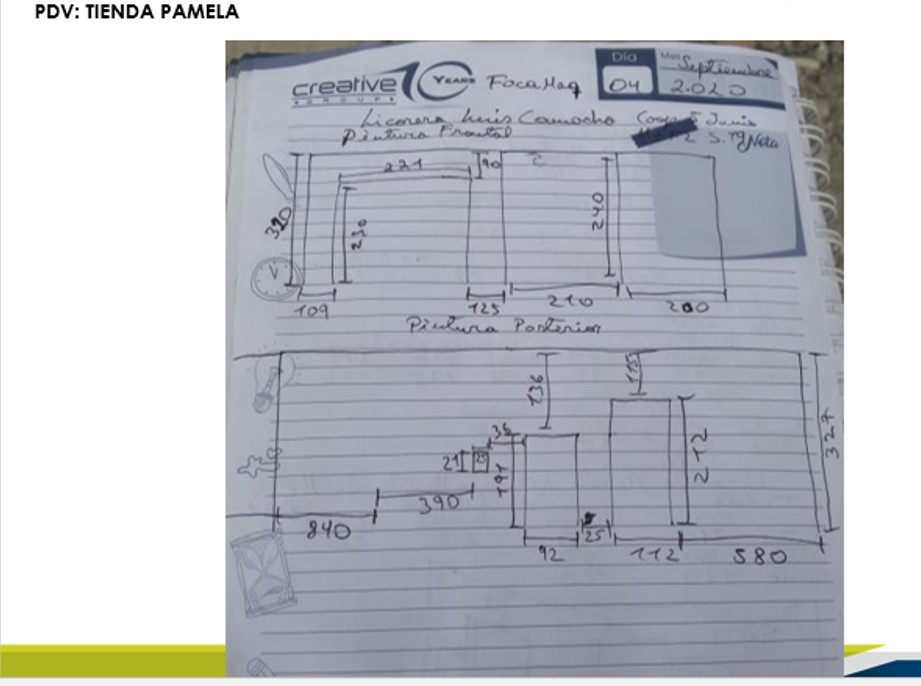 PDV: TIENDA PAMELA
creative 10 YEARS
GROUP
Día
04
Mes
Septiembre
2.020
Licorera Luis Camacho Coop 5 Junio
Pintura Frontal
221
90
320
230
240
109
125
210
200
Pintura Posterior
136
115
327
35
21
25
191
212
390
840
25
92
112
580